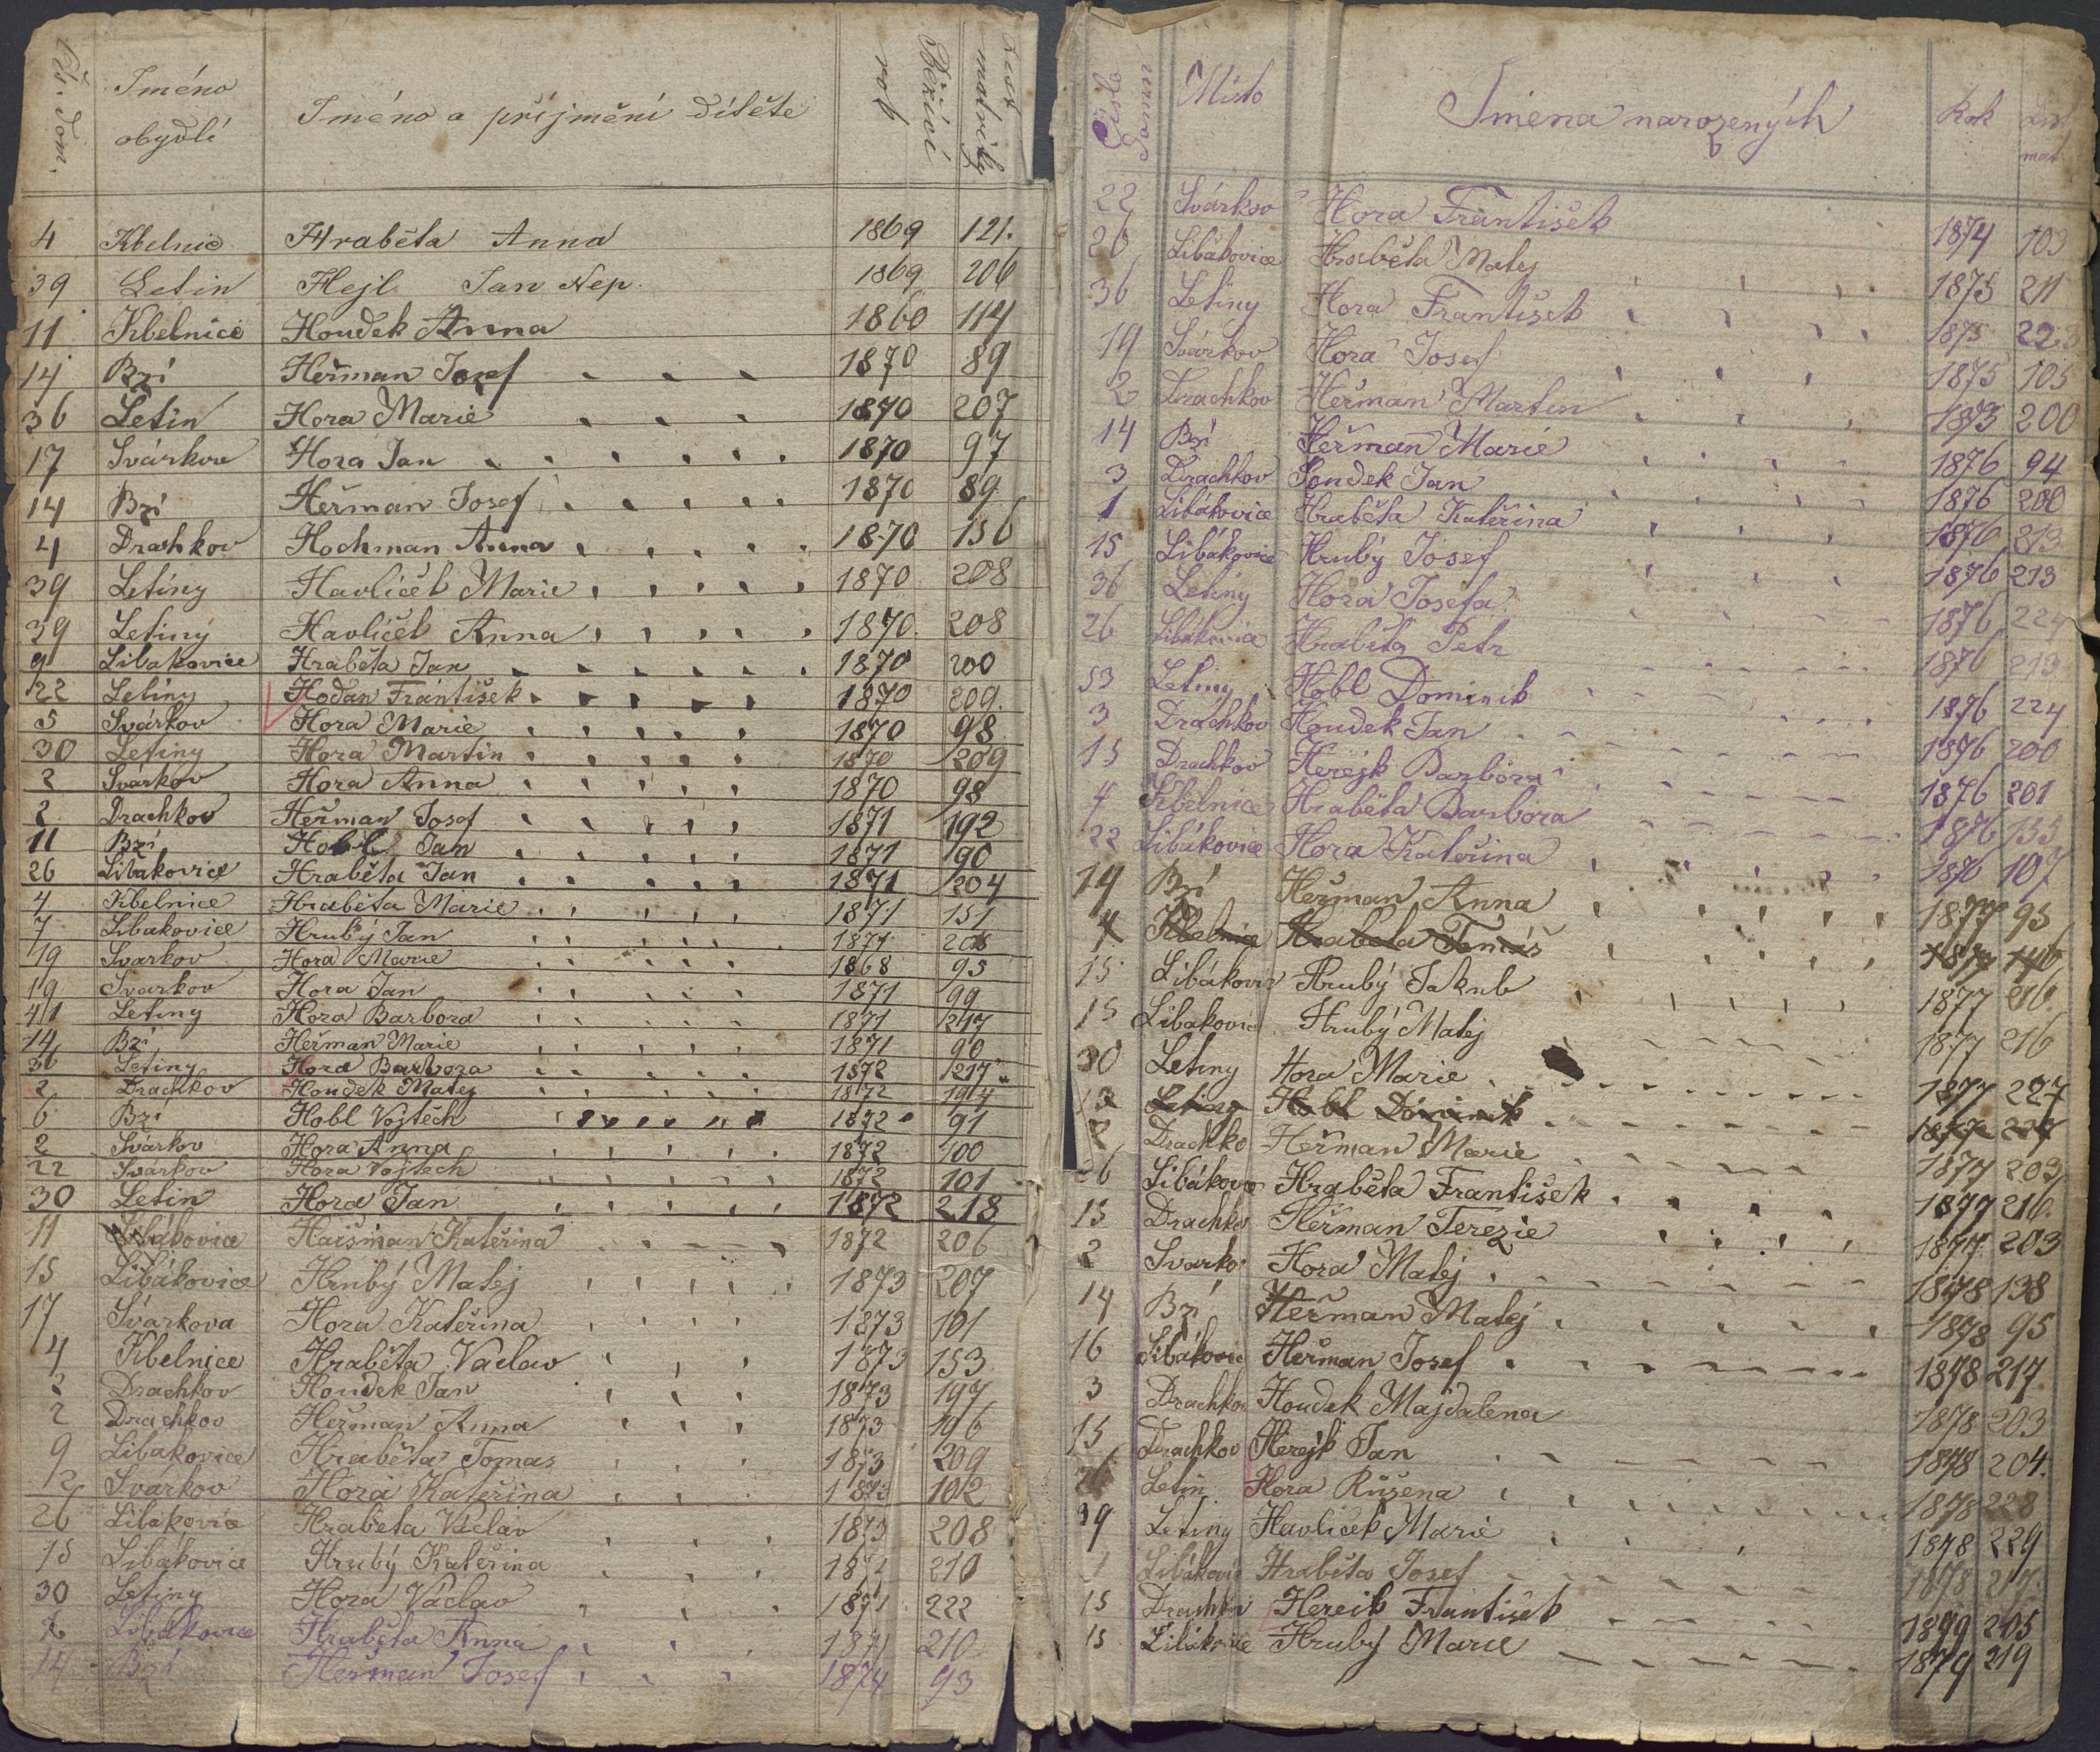 Čís. dom. Jméno obydlí Jméno a příjmění dítěte rok Běžící List matriky
4 Kbelnic Hraběta Anna 1869 121.
39 Letin Hejl Jan Nep. 1869 206
11 Kbelnice Houdek Anna 1860 114
14 Bzí Heřman Josef 1870 89
36 Letin Hora Marie 1870 207
17 Svárkov Hora Jan 1870 97
14 Bzí Heřman Josef 1870 89
4 Drachkov Hochman Anna 1870 156
39 Letiny Havlíček Marie 1870 208
39 Letiny Havlíček Anna 1870. 208
9 Libakovice Hraběta Jan 1870 200
22 Letiny Hodan František 1870 209.
5 Svárkov Hora Marie 1870 98
30 Letiny Hora Martin 1870 209
2 Svarkov Hora Anna 1870 98
2 Drachkov Heřman Josef 1871 192
11 Bzí Hobl Jan 1871 90
26 Libakovice Hraběta Jan 1871 204
4 Kbelnice Hraběta Marie 1871 151
7 Libakovice Hrubý Jan 1871 205
19 Svarkov Hora Marie 1868 95
19 Svarkov Hora Jan 1871 99
41 Letiny Hora Barbora 1871 217
14 Bzí Heřman Marie 1871 90
36 Letiny Hora Barbora 1872 217
2 Drachkov Houdek Matej 1872 194
6 Bzí Hobl Vojtěch 1872 91
2 Svárkov Hora Anna 1872 100
22 Svárkov Hora Vojtech 1872 101
30 Letin Hora Jan 1872 218
11 Libákovice Haišman Kateřina 1872 206
15 Libákovice Hrubý Matej 1873 207
17 Svárkova Hora Kateřina 1873 101
4 Kbelnice Hraběta Vaclav 1873 153
2 Drachkov Houdek Jan 1873 197
2 Drachkov Heřman Anna 1873 196
9 Libakovice Hraběta Tomas 1873 209
12 Svárkov Hora Kateřina 1873 102
26 Libakovice Hraběta Václav 1873 208
15 Libákovice Hrubý Kateřina 210
30 Letiny Hora Václav 222
Libákovice Hraběta Anna 1874 210
14 Bzí Heřman Josef 1874 93
Číslo domu Místo Jména narozených Rok List mat.
22 Svárkov Hora František 1874 103
26 Libákovice Hraběta Matej 1875 211
36 Letiny Hora František 1875 223
19 Svárkov Hora Josef 1875 105
2 Drachkov Heřman Martin 1873 200
14 Bzí Heřman Marie 1876 94
3 Drachkov Houdek Jan 1876 200
1 Libákovice Hraběta Kateřina 1876 213
15 Libákovice Hrubý Josef 1876 213
36 Letiny Hora Josefa 1876 224
26 Libákovice Hraběta Petr 1876 213
53 Letiny Hobl Dominik 1876 224
3 Drachkov Houdek Jan 1876 200
15 Drachkov Herejk Barbora 1876 201
4 Kbelnice Hraběta Barbora 1876 155
22 Libákovice Hora Kateřina 1876 107
14 Bzí Heřman Anna 1877 95
4 Kbelnice Hraběta Tomáš 1877
15 Libákovic Hrubý Jakub 1877 216
15 Libakovic Hrubý Matej 1877 216
30 Letiny Hora Marie 1877 227
Letiny Hobl Dominik 1877
2 Drachko Heřman Marie 1877 203
26 Libákove Hraběta František 1877 216.
15 Drachko Heřman Terezie 1877 203
2 Svarko Hora Matej 1878 138
14 Bzí Heřman Matěj 1878 95
16 Libákovic Heřman Josef 1878 217
3 Drachkov Houdek Majdalena 1878 203
15 Drachkov Herejk Jan 1878 204.
Letin Hora Růšena 1878 228
39 Letiny Havlíček Marie 1878 229
1 Libákovic Hraběta Josef 1878 217
15 Drachkov Hereik František 1899 205
15 Libákovice Hrubý Marie 1879 219